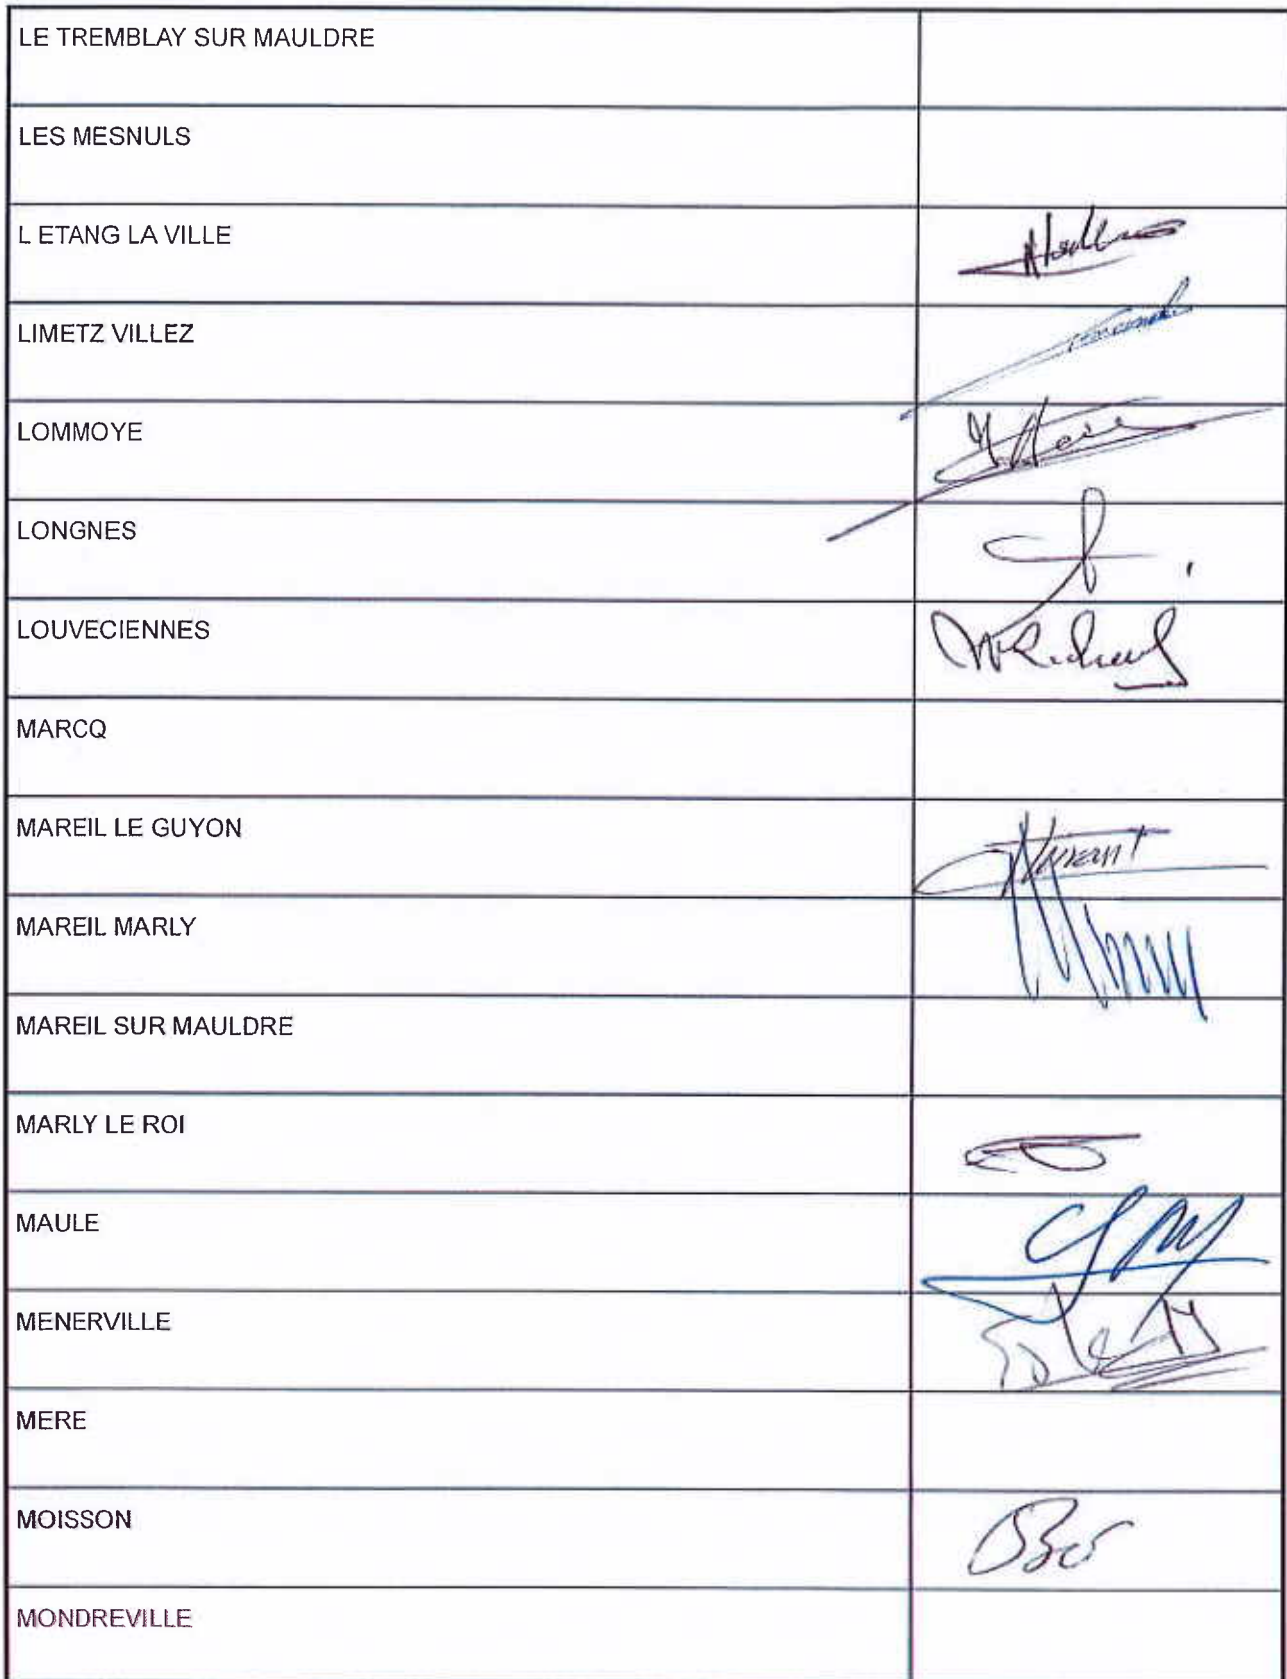 LE TREMBLAY SUR MAULDRE
LES MESNULS
L ETANG LA VILLE
LIMETZ VILLEZ
LOMMOYE
LONGNES
LOUVECIENNES
MARCQ
MAREIL LE GUYON
MAREIL MARLY
MAREIL SUR MAULDRE
MARLY LE ROI
MAULE
MENERVILLE
MERE
MOISSON
MONDREVILLE